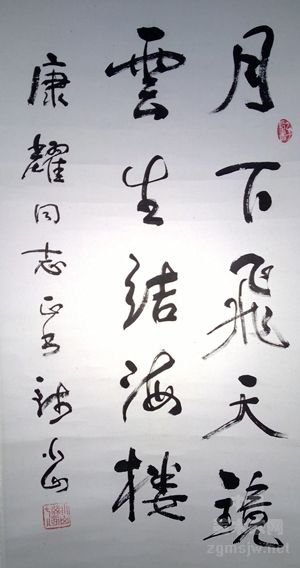 月下飛天镜
雲生結海楼
康耀同志正書
小山
zgmsjw.net